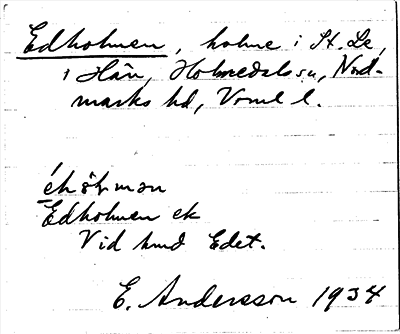 Edholmen, holme i St. Le,
i Hån, Holmedals sn, Nord-
marks hd, Vrml l.
Edholmen ek
Vid hmd Edet.
E. Andersson 1934